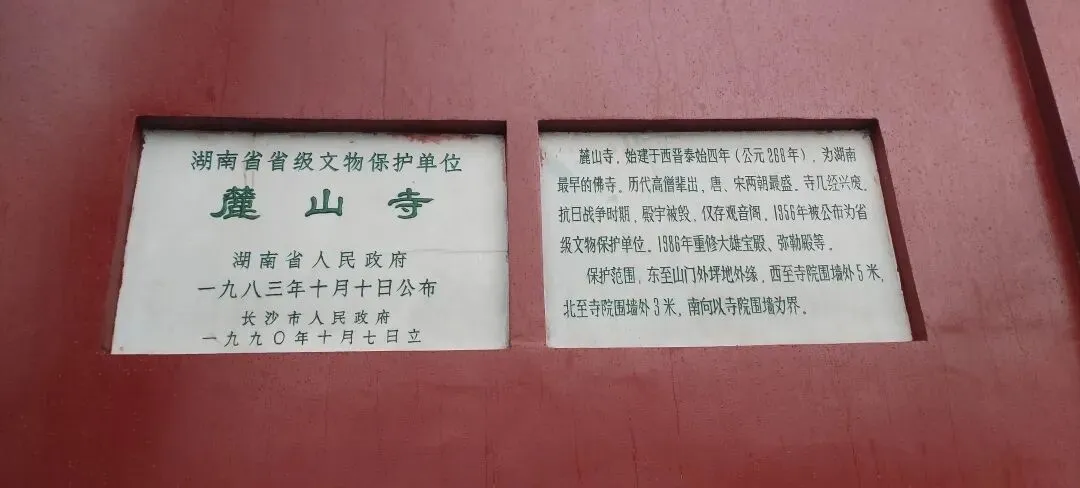 湖南省省级文物保护单位
麓山寺
湖南省人民政府
一九八三年十月十日公布
长沙市人民政府
一九九〇年十月七日立
麓山寺，始建于西晋泰始四年（公元268年），为湖南
最早的佛寺。历代高僧辈出，唐、宋两朝最盛。寺几经兴废。
抗日战争时期，殿宇被毁，仅存观音阁，1956年被公布为省
级文物保护单位。1986年重修大雄宝殿、弥勒殿等。
保护范围，东至山门外坪地外缘，西至寺院围墙外5米，
北至寺院围墙外3米，南向以寺院围墙边界。